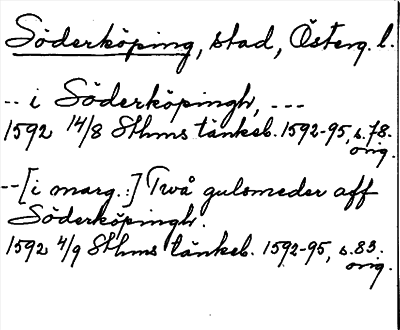 Söderköping, stad, Österg. l.
-- i Söderköpingh, ---
1592 14/8 Sthms tänkeb. 1592-95, s. 78.
orig.
--[i marg.:] Twå gulsmeder aff
Söderköpingh.
1592 4/9 Sthms tänkeb. 1592-95, s. 83.
orig.